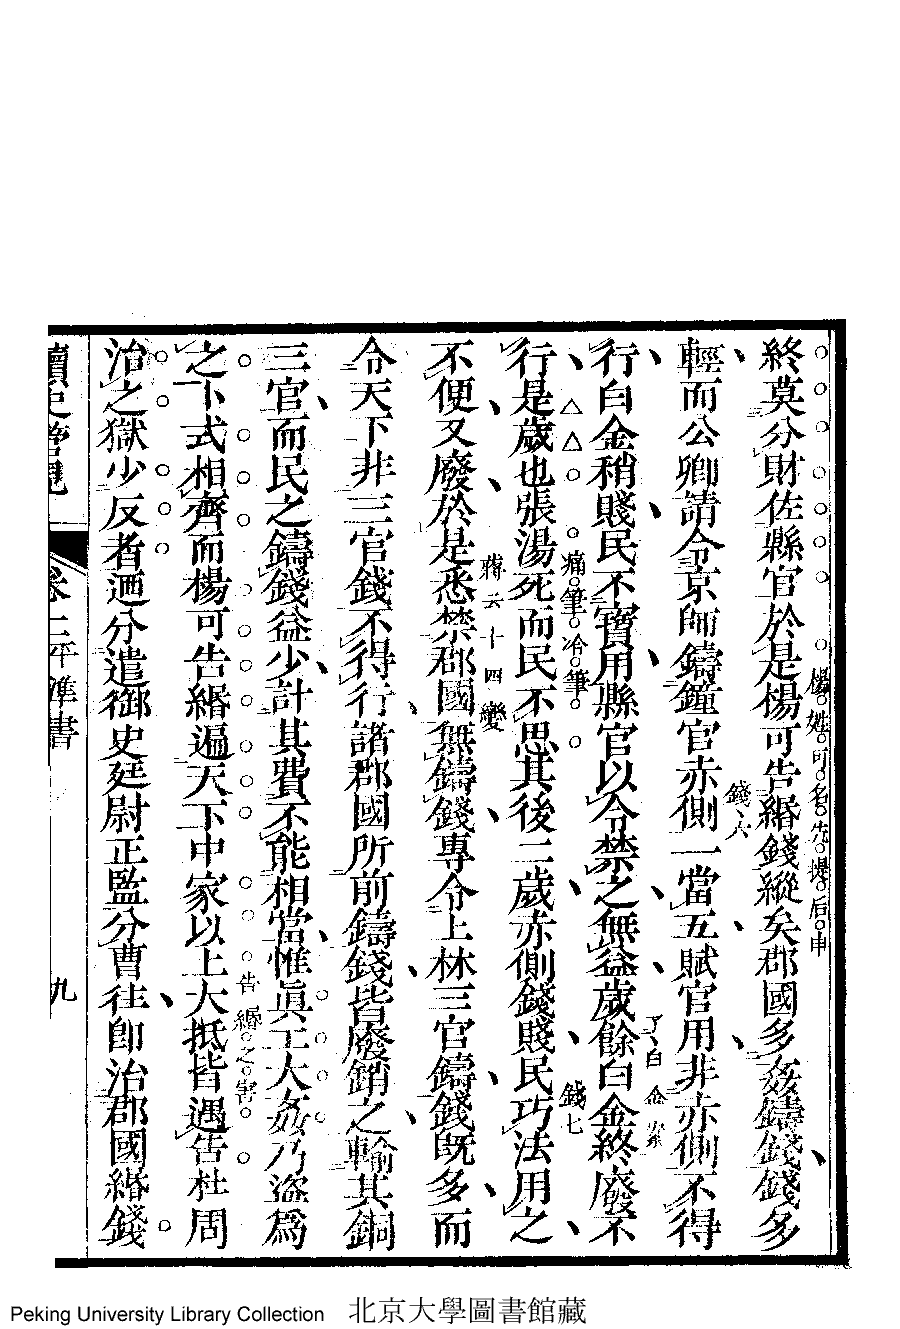 終莫分財佐縣官於是楊可告緡錢縱矣郡國多姦鑄錢錢多
楊姓可名先提后申
輕而公卿請令京師鑄鐘官赤側一當五賦官用非赤側不得
錢六
行白金稍賤民不寶用縣官以令禁之無益歲餘白金終廢不
了白金案
行是歲也張湯死而民不思其後二歲赤側錢賤民巧法用之
痛筆冷筆
錢七
不便又廢於是悉禁郡國無鑄錢專令上林三官鑄錢既多而
蔣云十四變
令天下非三官錢不得行諸郡國所前鑄錢皆廢銷之輸其銅
三官而民之鑄錢益少計其費不能相當惟眞工大姦乃盜爲
之卜式相齊而楊可告緡遍天下中家以上大抵皆遇告杜周
告緡之害
治之獄少反者迺分遣御史廷尉正監分曹往卽治郡國緡錢
讀史管見
卷二平準書
九
Peking University Library Collection 北京大學圖書館藏